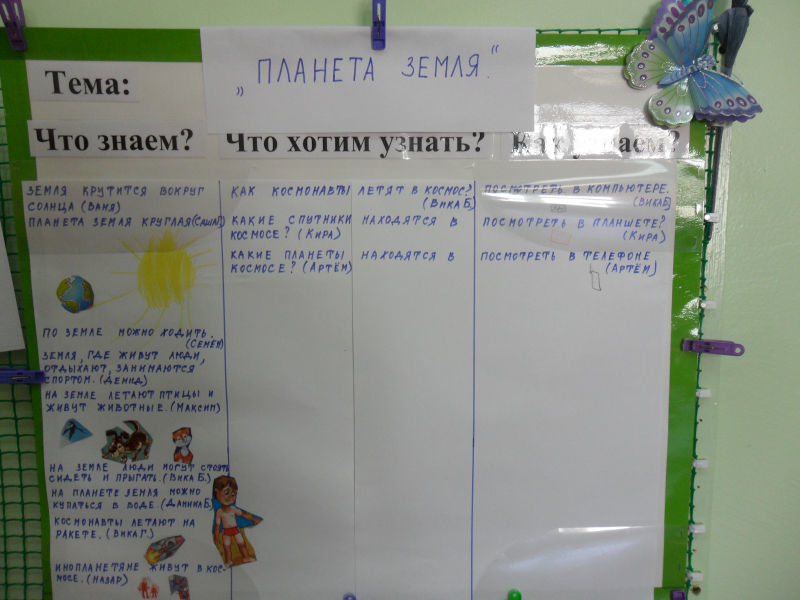 Тема:
„ПЛАНЕТА ЗЕМЛЯ.“
Что знаем?
Что хотим узнать?
ЗЕМЛЯ КРУТИТСЯ ВОКРУГ
СОЛНЦА (ВАНЯ)
ПЛАНЕТА ЗЕМЛЯ КРУГЛАЯ
ПО ЗЕМЛЕ МОЖНО ХОДИТЬ.
(СЕМЁН)
ЗЕМЛЯ, ГДЕ ЖИВУТ ЛЮДИ,
ОТДЫХАЮТ, ЗАНИМАЮТСЯ
СПОРТОМ. (ДЕМИД)
НА ЗЕМЛЕ ЛЕТАЮТ ПТИЦЫ И
ЖИВУТ ЖИВОТНЫЕ. (МАКСИМ)
НА ЗЕМЛЕ ЛЮДИ МОГУТ СТОЯТЬ
СИДЕТЬ И ПРЫГАТЬ. (ВИКА Б.)
НА ПЛАНЕТЕ ЗЕМЛЯ МОЖНО
КУПАТЬСЯ В ВОДЕ. (ДАНИИЛ Б)
КОСМОНАВТЫ ЛЕТАЮТ НА
РАКЕТЕ. (ВИКА Г.)
ИНОПЛАНЕТЯНЕ ЖИВУТ В КОС-
МОСЕ. (НАЗАР)
КАК КОСМОНАВТЫ ЛЕТЯТ В КОСМОС?
(ВИКА Б.)
КАКИЕ СПУТНИКИ НАХОДЯТСЯ В
КОСМОСЕ? (КИРА)
КАКИЕ ПЛАНЕТЫ НАХОДЯТСЯ В
КОСМОСЕ? (АРТЁМ)
ПОСМОТРЕТЬ В КОМПЬЮТЕРЕ.
(ВИКА Б)
ПОСМОТРЕТЬ В ПЛАНШЕТЕ?
(КИРА)
ПОСМОТРЕТЬ В ТЕЛЕФОНЕ
(АРТЁМ)